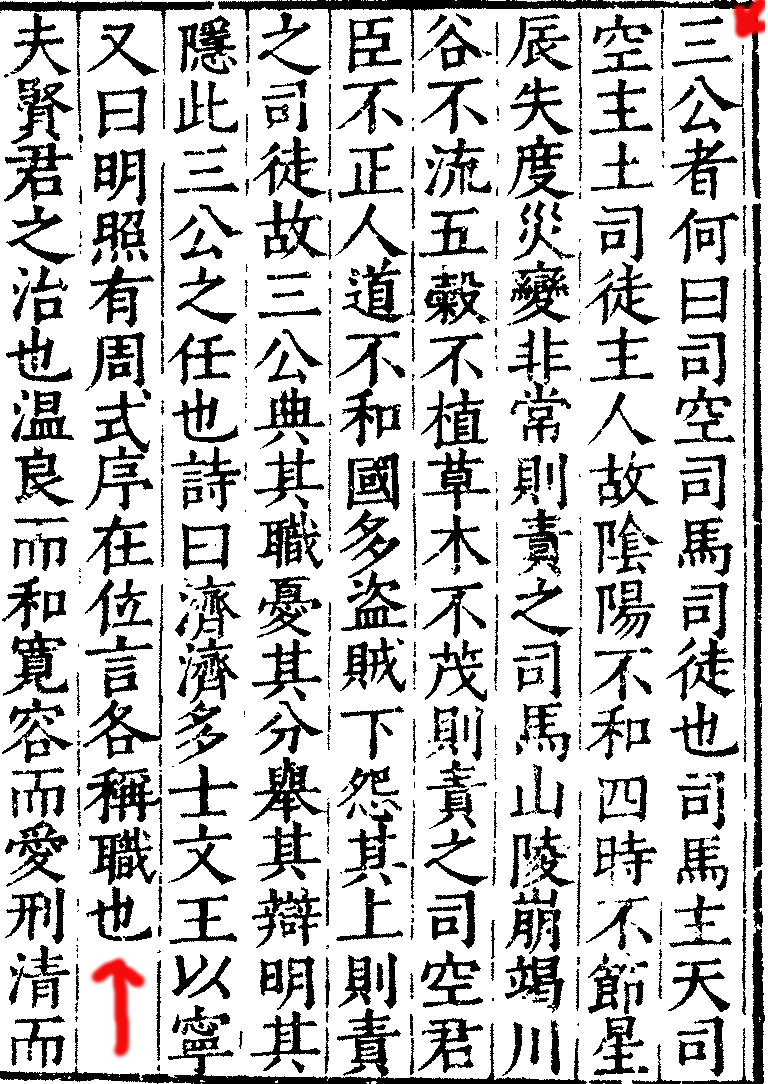 三公者何曰司空司馬司徒也司馬主天司
空主土司徒主人故陰陽不和四時不節星
辰失度災變非常則責之司馬山陵崩竭川
谷不流五糓不植草木不茂則責之司空君
臣不正人道不和國多盗賊下怨其上則責
之司徒故三公典其職憂其分舉其辯明其
隱此三公之任也詩曰濟濟多士文王以寧
又曰明照有周式序在位言各稱職也
夫賢君之治也温良而和寛容而愛刑清而